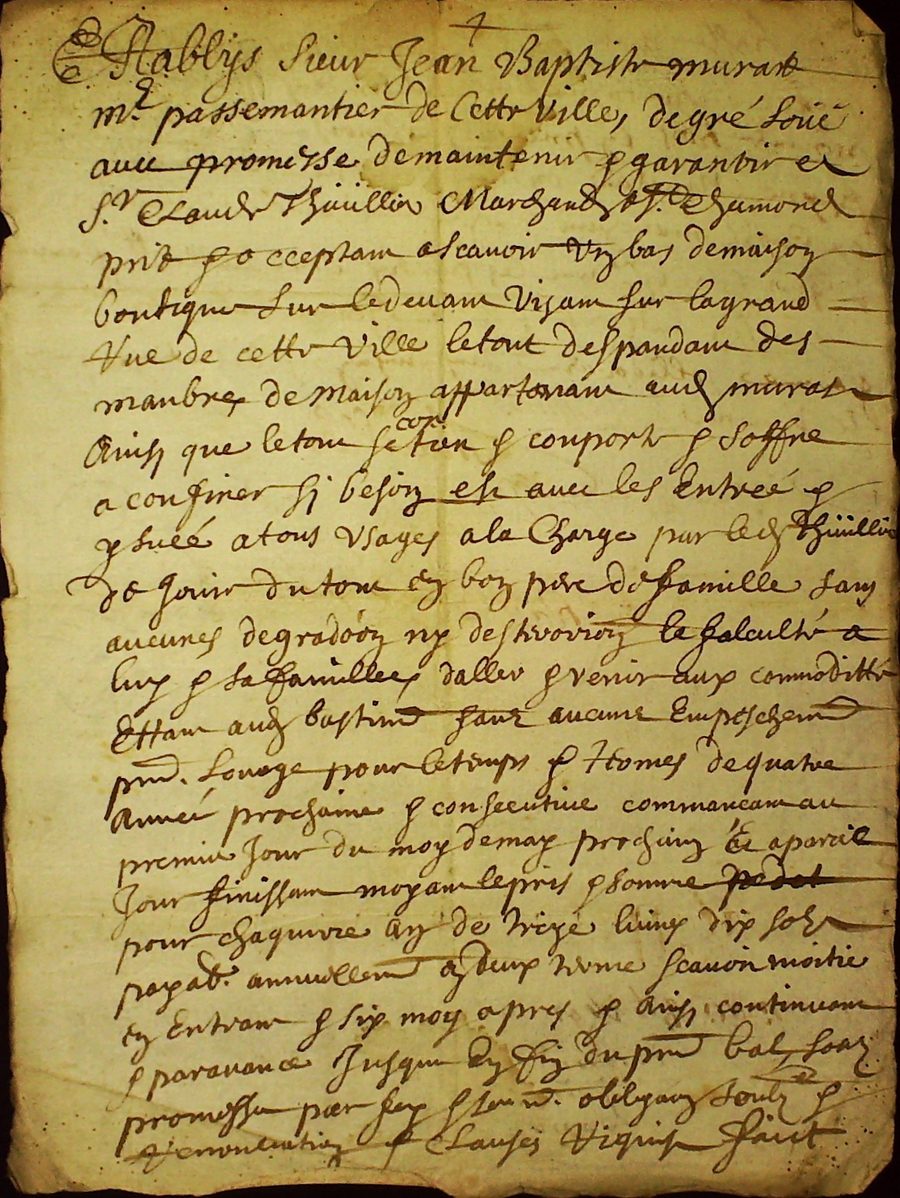 Establys Sieur Jean Baptiste murat
mre passemantier de Cette Ville, de gré loüe
avec promesse de maintenir & garantir a
Sr. Claude Thüillier Marchand a St. Chamond
pnt & acceptant ascavoir Un bas de maison
boutique Sur le devant Visant Sur la grand
Rue de cette Ville le tout despandant des
manbres de Maison appartenant aud murat
Ainsy que le tout se contien & conporte & Soffre
a confiner sy besoin est avec les Entreé &
ysueé a tous Usages a la Charge par led Thüillier
de Jouir du tout en bon pere de famille sans
aucunes degradaon ny desterioration la faculté a
luy & sa famillee daller & venir aux commoditté
Ettant aud bastimt sans aucune Empeschemt
pnt. Louage pour le temps & Termes de quatre
Anneé prochaine & consecutive commancant au
premier Jour du moy de may prochain & a pareil
Jour finissant moyant le pris & somme
pour chaquune an de treze livres dix sols
payab. annuellemt en deux terme scavoir moitie
en Entrant & six moy apres & Ainsy continuant
& paravance Jusque En fin du pnt bal, soubz
promesse par foy & sermt. obligaon soubz &
Renontiation & Clauses Requis faict